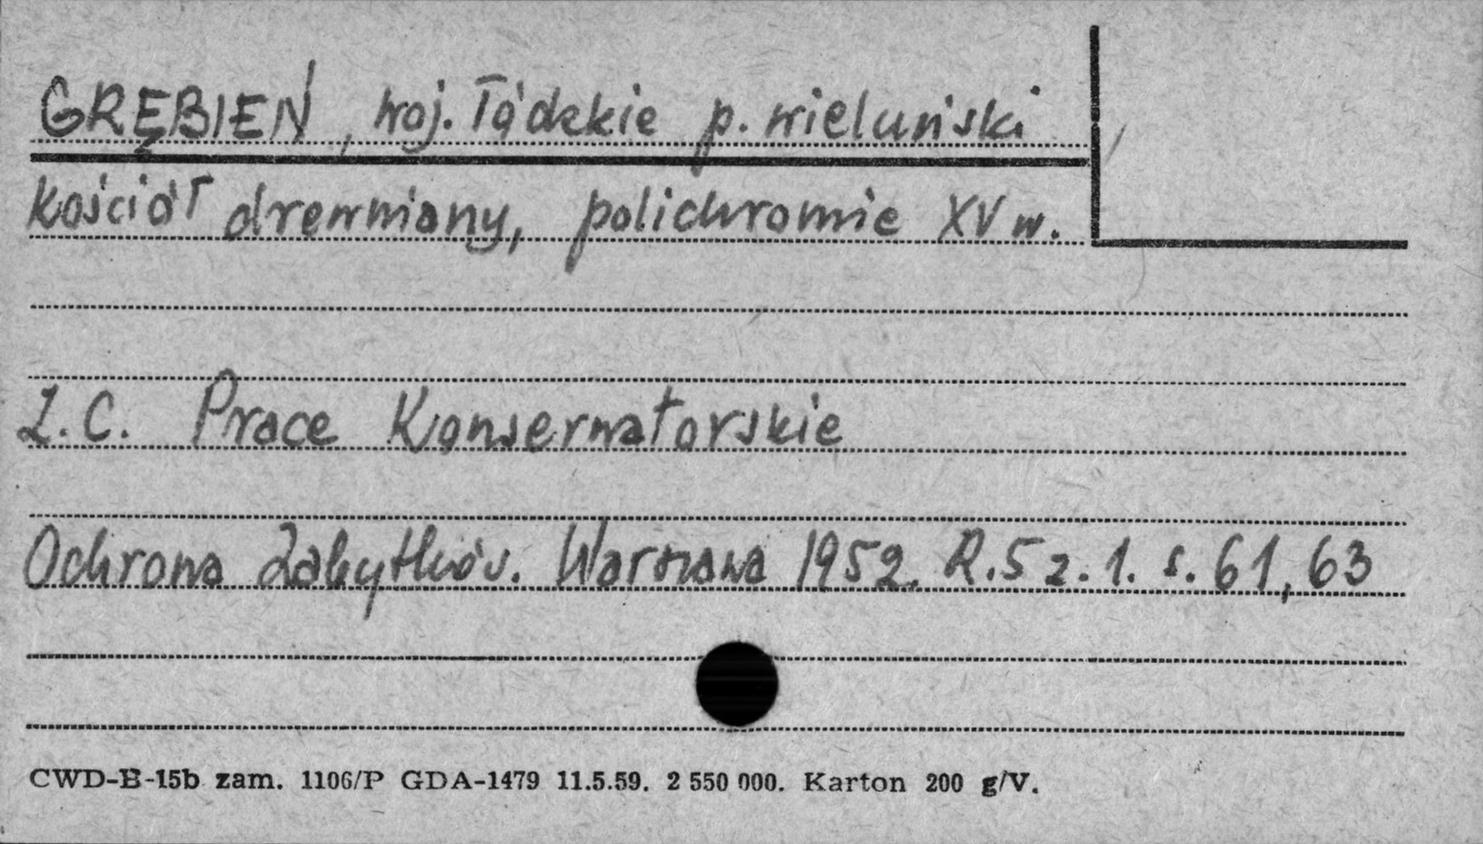 GRĘBIEŃ, woj. łódzkie p. wieluński
Kościół drewniany, polichromie XV w.
Z.C. Prace Konserwatorskie
Ochrona Zabytków. Warszawa 1952. R.5 z.1. s. 61, 63
CWD-B-15b zam. 1106/P GDA-1479 11.5.59. 2 550 000. Karton 200 g/V.